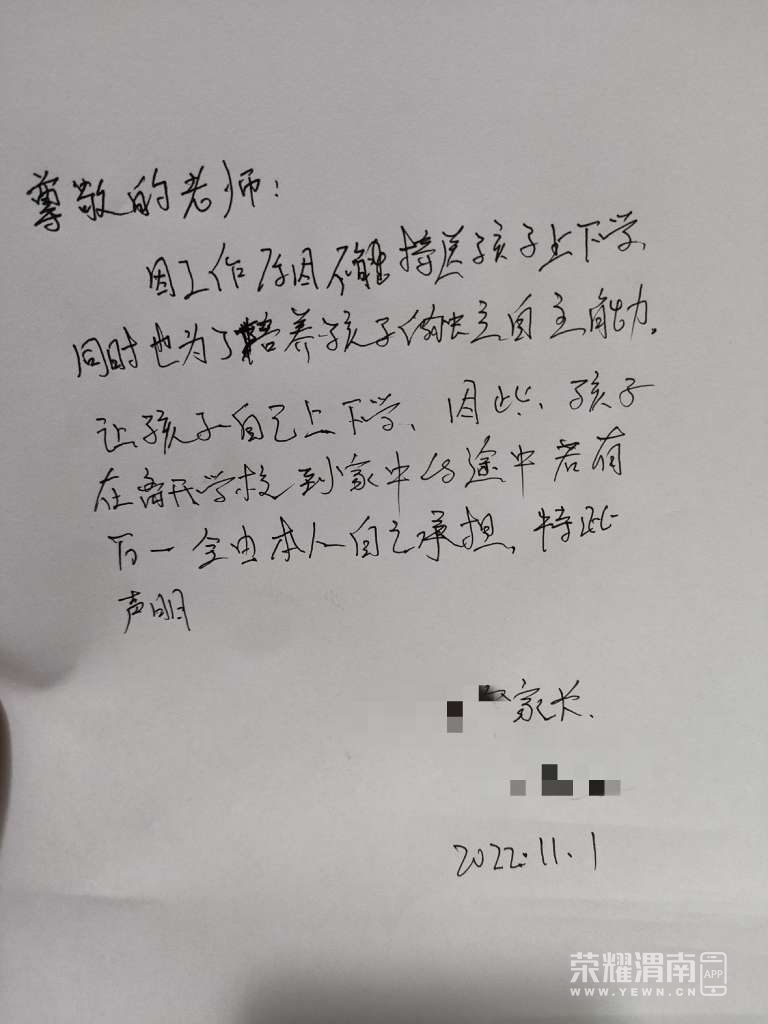 尊敬的老师:
因工作原因不能接送孩子上下学,
同时也为了培养孩子的独立自主能力,
让孩子自己上下学、因此、孩子
在离开学校到家中的途中若有
万一全由本人自己承担,特此
声明
家长.
2022.11.1
荣耀渭南 APP
WWW.YEWN.CN